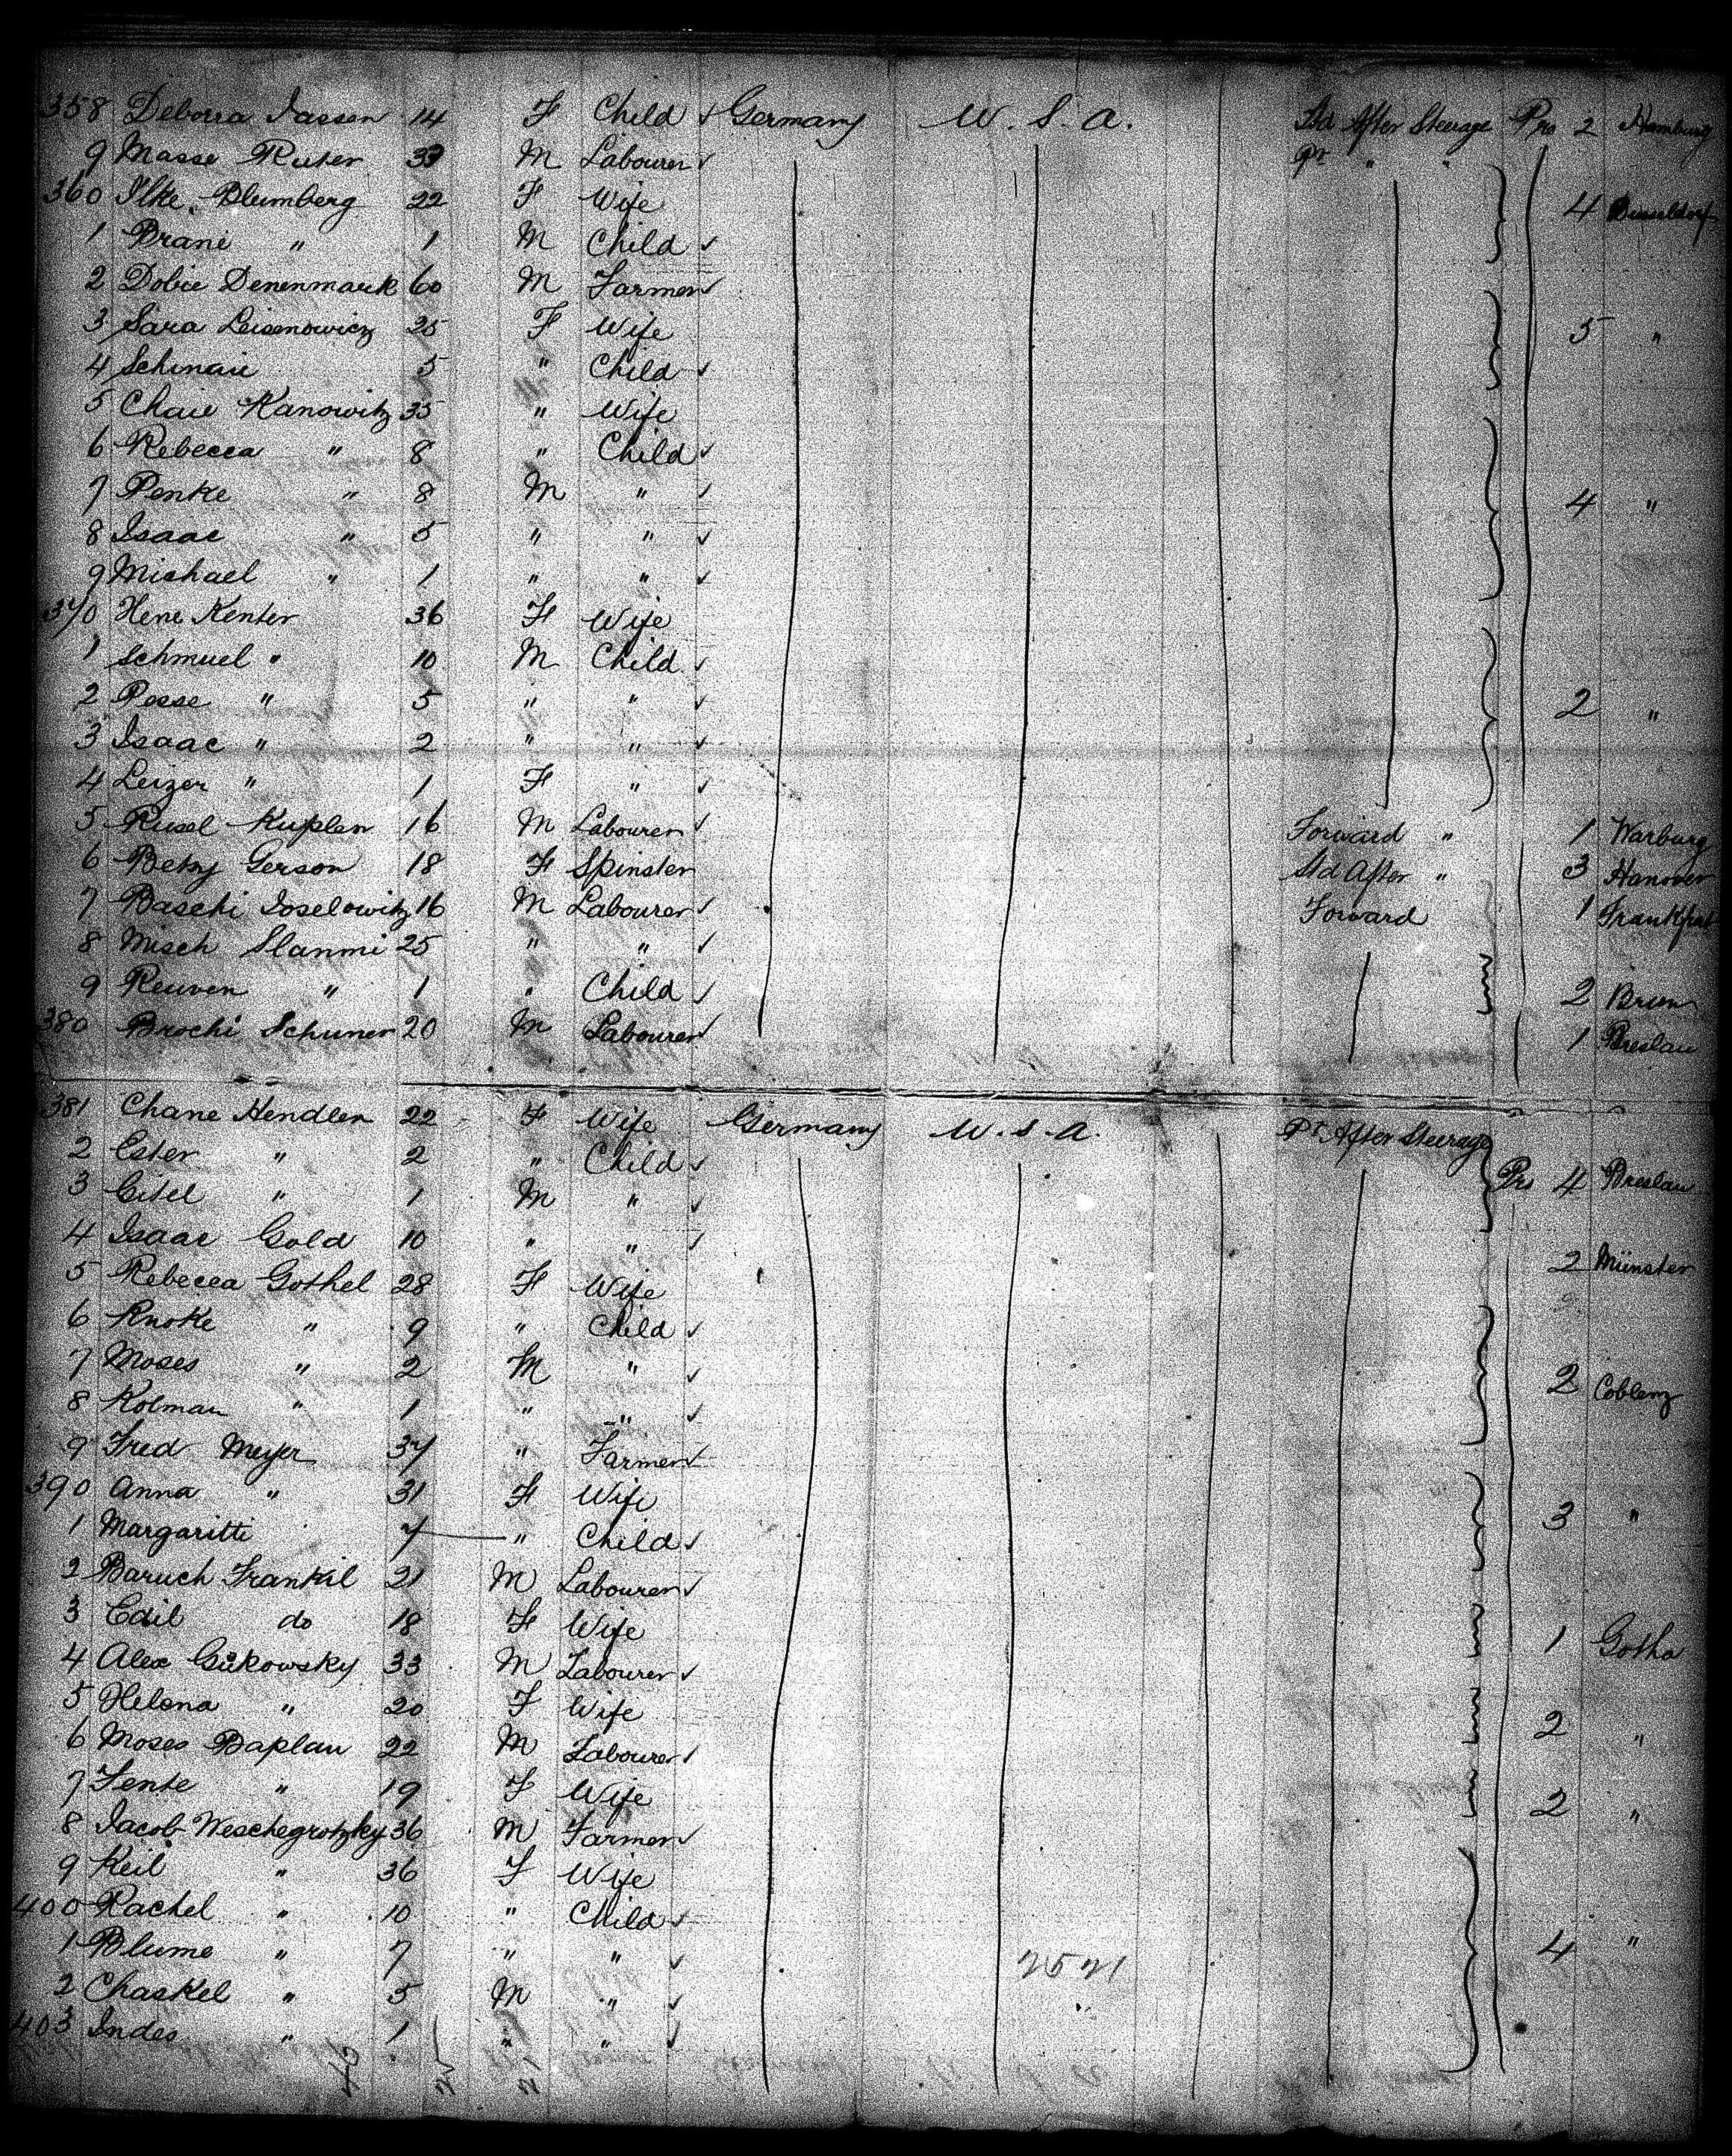 358 Deborra Jassen 14 F Child ✓ Germany U. S. A. Std After Steerage Pro 2 Hamburg
9 Masse Ruter M Labourer ✓ Pt " "
360 Ilke Blumberg 22 F Wife 4 Dusseldorf
1 Brane " 1 M Child ✓
2 Dobie Denenmark 60 M Farmer ✓
3 Sara Leisenowicz 25 F Wife 5 "
4 Schmaie 5 " Child ✓
5 Chaie Kanowitz 35 " Wife
6 Rebecca " 8 " Child ✓
7 Penke " 8 M " ✓ 4 "
8 Isaac " 5 " " ✓
9 Michael " 1 " " ✓
370 Hene Kenter 36 F Wife
1 Schmuel " 10 M Child ✓
2 Posse " 5 " " ✓ 2 "
3 Isaac " 2 " " ✓
4 Leizer " 1 F " ✓
5 Rusel Kuplen 16 M Labourer ✓ Forward " 1 Warburg
6 Betsy Gerson 18 F Spinster Std After " 3 Hanover
7 Baschi Joselowitz 16 M Labourer ✓ Forward 1 Frankfurt
8 Misch Slanmi 25 " " ✓
9 Reuven " 1 " Child ✓ 2
380 Brochi Schuner 20 M Labourer ✓ 1 Breslau
381 Chane Hendler 22 F Wife Germany U. S. A. Pt After Steerage
2 Ester " 2 " Child ✓ Pro 4 Breslau
3 Citel " 1 M " ✓
4 Isaac Gold 10 " " ✓
5 Rebecca Gothel 28 F Wife 2 Münster
6 Knoke " 9 " Child ✓
7 Moses " 2 M " ✓ 2 Coblenz
8 Kolman " 1 " " ✓
9 Fred Meyer 37 " Farmer ✓
390 Anna " 31 F Wife
1 Margaritti 7 " Child ✓ 3 "
2 Baruch Frankil 21 M Labourer ✓
3 Edil do 18 F Wife 1 Gotha
4 Alex Gukowsky 33 M Labourer ✓
5 Helena " 20 F Wife 2 "
6 Moses Baplan 22 M Labourer ✓
7 Fente " 19 F Wife 2 "
8 Jacob Weschegrotzky 36 M Farmer ✓
9 Keil " 36 F Wife
400 Rachel " 10 " Child ✓
1 Blume " 7 " " ✓ 4 "
2 Chaskel " 5 M " ✓
403 Indes " 1 " " ✓